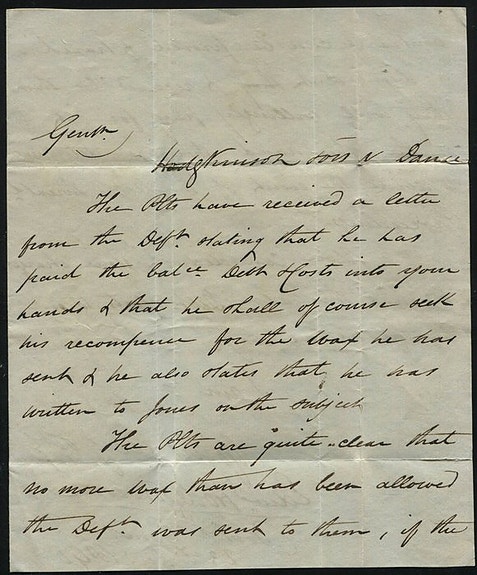 Gentn.
Hodgkinson Tors v Dance
The Plts have received a letter
from the Deft. stating that he has
paid the balce Debt & Costs into your
hands & that he shall of course seek
his recompence for the wax he has
sent & he also states that he has
written to Jones on the subject
The Plts are quite clear that
no more wax than has been allowed
the Deft. was sent to them, if the